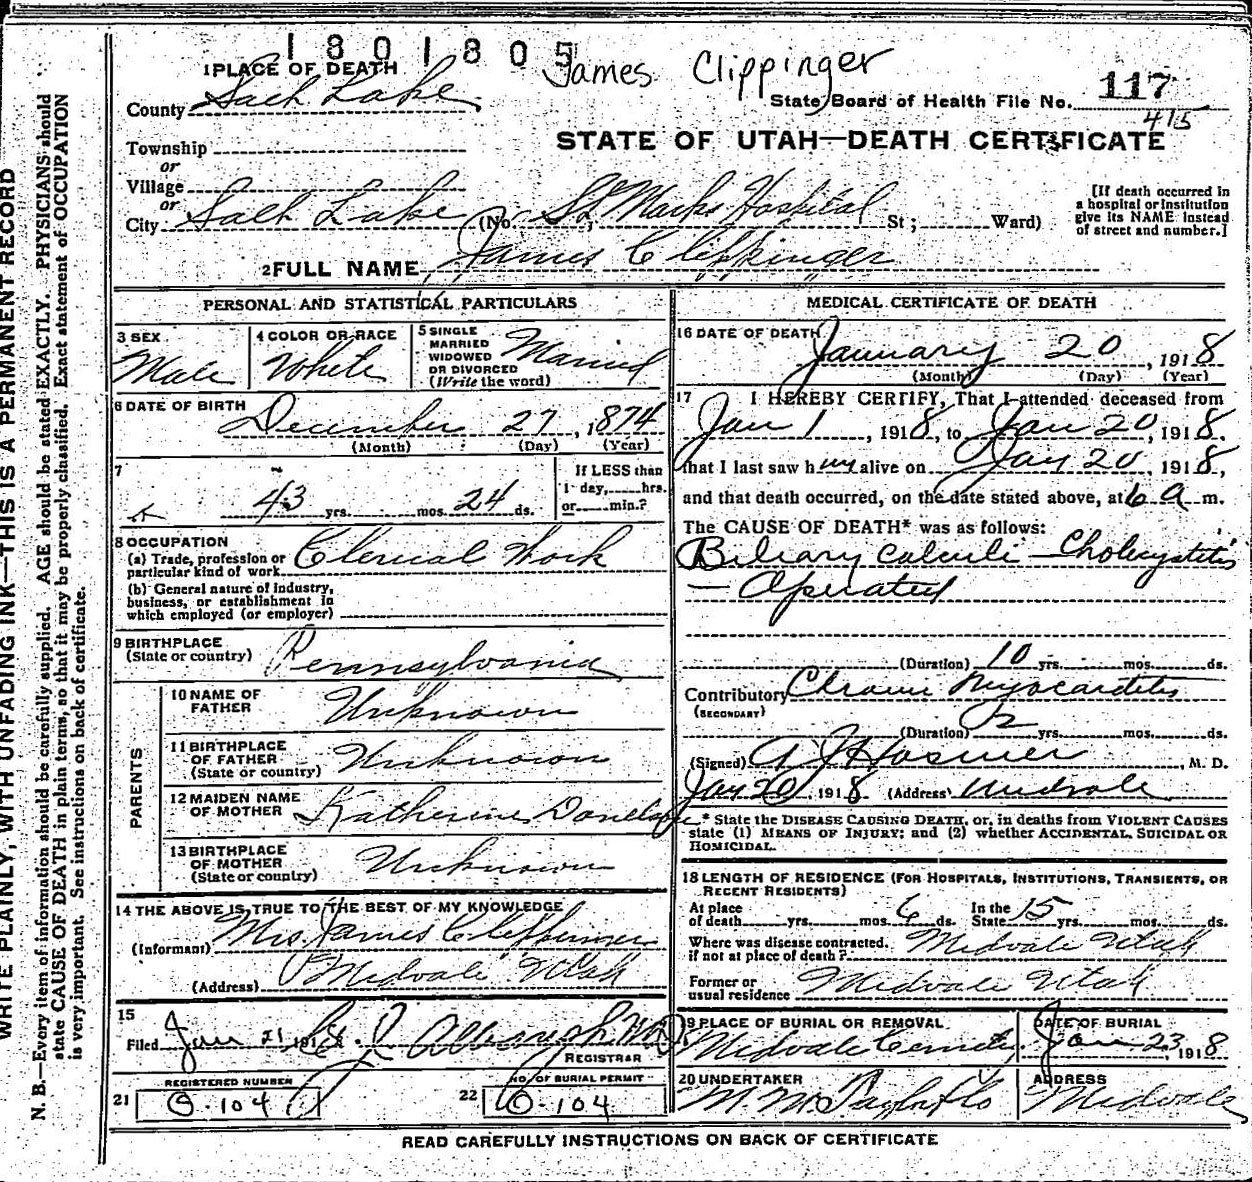 1801805
James Clippinger
1 PLACE OF DEATH
County Salt Lake
State Board of Health File No. 117
415
STATE OF UTAH—DEATH CERTIFICATE
Township
or
Village
or
City Salt Lake (No. St Marks Hospital St; Ward)
[If death occurred in a hospital or institution give its NAME instead of street and number.]
2 FULL NAME James Clippinger
PERSONAL AND STATISTICAL PARTICULARS
3 SEX Male
4 COLOR OR RACE White
5 SINGLE MARRIED WIDOWED OR DIVORCED (Write the word) Married
6 DATE OF BIRTH December 27, 1874
(Month) (Day) (Year)
7
43 yrs. mos. 24 ds.
If LESS than 1 day, hrs. or min.?
8 OCCUPATION
(a) Trade, profession or particular kind of work Clerical Work
(b) General nature of industry, business, or establishment in which employed (or employer)
9 BIRTHPLACE (State or country) Pennsylvania
PARENTS
10 NAME OF FATHER Unknown
11 BIRTHPLACE OF FATHER (State or country) Unknown
12 MAIDEN NAME OF MOTHER Katherine
13 BIRTHPLACE OF MOTHER (State or country) Unknown
14 THE ABOVE IS TRUE TO THE BEST OF MY KNOWLEDGE
(Informant) Mrs. James Clippinger
(Address) Midvale Utah
15
Filed Jan 21, 1918
REGISTRAR
REGISTERED NUMBER
21 O-104
NO. OF BURIAL PERMIT
22 O-104
MEDICAL CERTIFICATE OF DEATH
16 DATE OF DEATH January 20, 1918
(Month) (Day) (Year)
17 I HEREBY CERTIFY, That I attended deceased from
Jan 1, 1918, to Jan 20, 1918.
that I last saw him alive on Jan 20, 1918,
and that death occurred, on the date stated above, at 6 a m.
The CAUSE OF DEATH* was as follows:
Biliary Calculi - Cholecystitis
- Operated
(Duration) 10 yrs. mos. ds.
Contributory Chronic Myocarditis
(SECONDARY)
(Duration) 2 yrs. mos. ds.
(Signed) A J Hosmer, M. D.
Jan 20 1918 (Address) Midvale
* State the DISEASE CAUSING DEATH, or, in deaths from VIOLENT CAUSES
state (1) MEANS OF INJURY; and (2) whether ACCIDENTAL, SUICIDAL OR
HOMICIDAL.
18 LENGTH OF RESIDENCE (FOR HOSPITALS, INSTITUTIONS, TRANSIENTS, OR
RECENT RESIDENTS)
At place of death yrs. mos. 6 ds. In the State 15 yrs. mos. ds.
Where was disease contracted, if not at place of death? Midvale Utah
Former or usual residence Midvale Utah
19 PLACE OF BURIAL OR REMOVAL
Midvale
DATE OF BURIAL
Jan 23, 1918
20 UNDERTAKER
ADDRESS
Midvale
READ CAREFULLY INSTRUCTIONS ON BACK OF CERTIFICATE
WRITE PLAINLY, WITH UNFADING INK—THIS IS A PERMANENT RECORD
N. B.—Every item of information should be carefully supplied. AGE should be stated EXACTLY. PHYSICIANS should
state CAUSE OF DEATH in plain terms, so that it may be properly classified. Exact statement of OCCUPATION
is very important. See instructions on back of certificate.